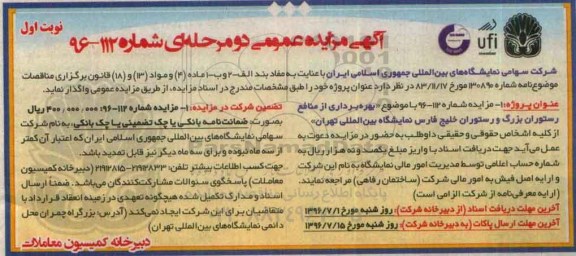 نوبت اول
آگهی مزایده عمومی دو مرحله‌ای شماره ۱۱۲-۹۶
ufi
شرکت سهامی نمایشگاه‌های بین‌المللی جمهوری اسلامی ایران با عنایت به مفاد بند الف-۲ و ب-۱ ماده (۴) و مواد (۱۳) و (۱۸) قانون برگزاری مناقصات
موضوع نامه شماره ۱۳۰۸۹۰ مورخ ۸۳/۱۱/۱۷ در نظر دارد عنوان پروژه خود را طبق مشخصات مندرج در اسناد مزایده، از طریق مزایده عمومی واگذار نماید.
عنوان پروژه: ۱- مزایده شماره ۱۱۲-۹۶ با موضوع «بهره‌برداری از منافع
رستوران بزرگ و رستوران خلیج فارس نمایشگاه بین‌المللی تهران»
از کلیه اشخاص حقوقی و حقیقی داوطلب به حضور در مزایده دعوت به
عمل می‌آید جهت دریافت اسناد با واریز مبلغ یکصد و ده هزار ریال به
شماره حساب اعلامی توسط مدیریت امور مالی نمایشگاه به نام این شرکت
و ارایه اصل فیش به امور مالی شرکت (ساختمان رفاهی) مراجعه نمایند.
(ارایه معرفی‌نامه از شرکت الزامی است)
آخرین مهلت دریافت اسناد (از دبیرخانه شرکت): روز شنبه مورخ ۱۳۹۶/۷/۱
آخرین مهلت ارسال پاکات (به دبیرخانه شرکت): روز شنبه مورخ ۱۳۹۶/۷/۱۵
تضمین شرکت در مزایده: ۱- مزایده شماره ۱۱۲-۹۶ ۴۰۰,۰۰۰,۰۰۰ ریال
بصورت: ضمانت‌نامه بانکی یا چک تضمینی یا چک بانکی، به نام شرکت
سهامی نمایشگاه‌های بین‌المللی جمهوری اسلامی ایران که اعتبار آن کمتر
از سه ماه نبوده و برای سه ماه دیگر نیز قابل تمدید باشد.
جهت کسب اطلاعات بیشتر تلفن: ۲۱۹۱۲۸۳۳-۲۱۹۱۲۸۱۵ (دبیرخانه کمیسیون
معاملات) پاسخگوی سئوالات مشارکت‌کنندگان می‌باشد. ضمناً ارسال
اسناد و مدارک تکمیل شده هیچگونه تعهدی در زمینه انعقاد قرارداد با
متقاضیان برای این شرکت ایجاد نمی‌کند (آدرس: بزرگراه چمران محل
دائمی نمایشگاه‌های بین‌المللی تهران)
دبیرخانه کمیسیون معاملات